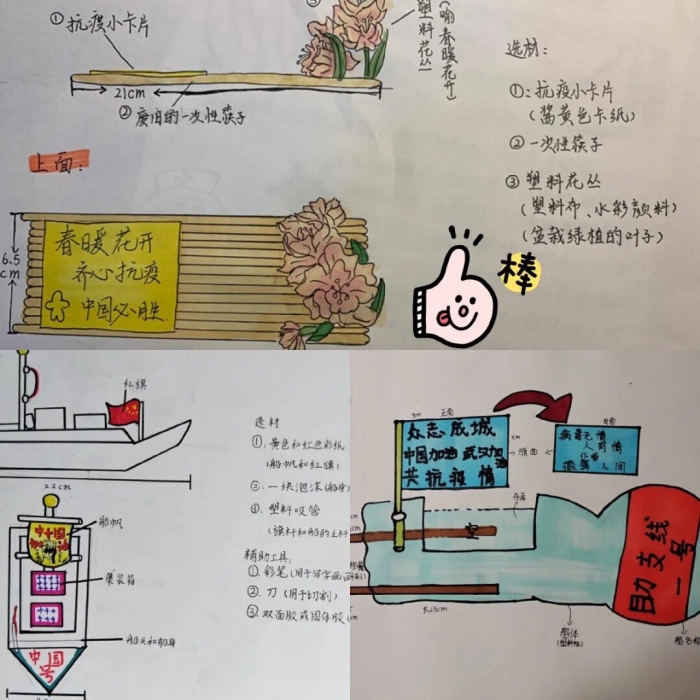 ①抗疫小卡片
③
塑料花丛
(喻春暖花开)
21cm
②废旧的一次性筷子
选材:
①:抗疫小卡片
(酱黄色卡纸)
②一次性筷子
③塑料花丛
(塑料布、水彩颜料)
(盆栽绿植的叶子)
上面:
6.5
cm
春暖花开
齐心抗疫
中国必胜
棒
红旗
22cm
船帆
中国
加油
集装箱
船头和船身
中国
号
选材
①:黄色和红色彩纸
(船帆和红旗)
③:一块泡沫(船身)
④:塑料吸管
辅助工具:
①彩笔
②刀(用于切割)
③双面胶或固体胶
正面
众志成城
中国加油 武汉加油
共抗疫情
cm
背面
病毒无情
人间有情
让爱
人间
空
船体
助支线
一号